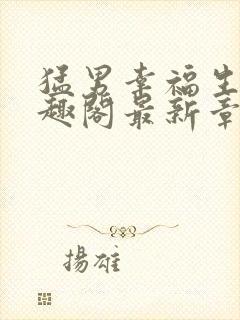 猛男幸福生
趣阁最新章
揚雄